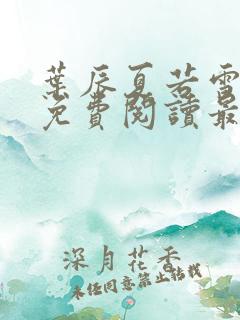 葉辰夏若雪
免費閱讀最
深月花香
未經同意禁止轉載